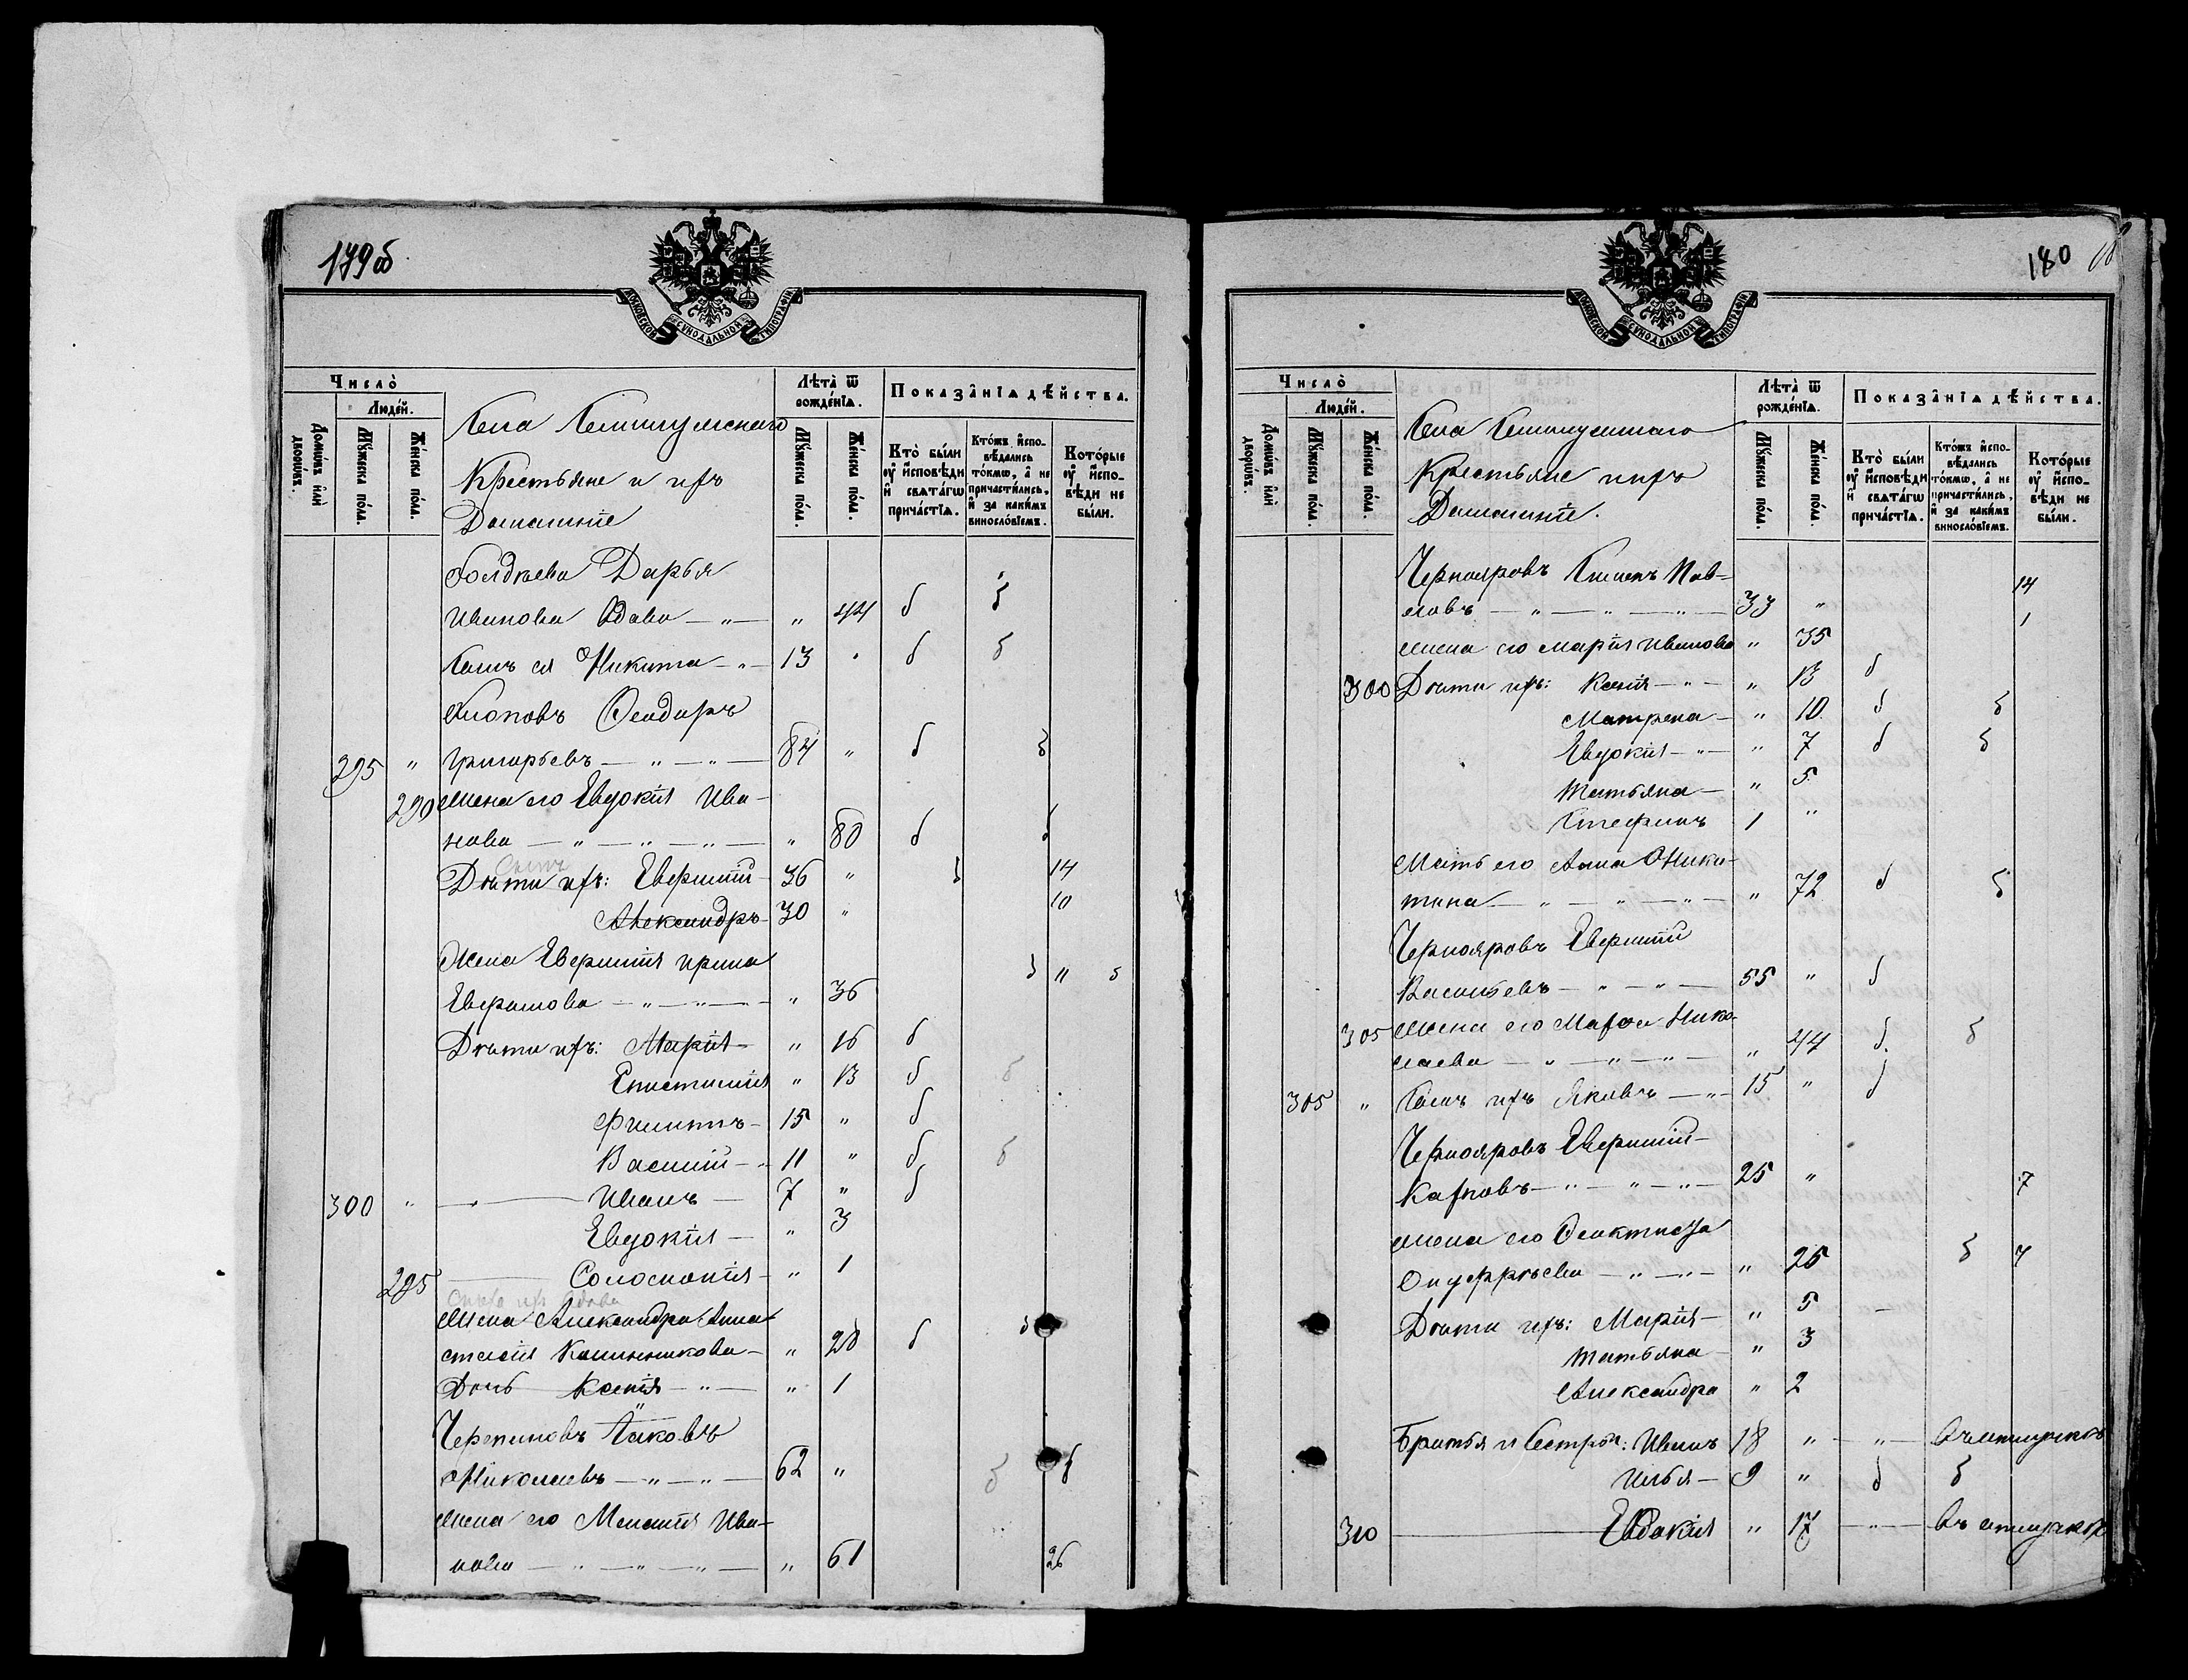 179об
МОСКОВСКОЙ СѴНОДАЛЬНОЙ ТИПОГРАФІИ
Число̀
Людей.
Домѡвъ и҆лѝ дворѡвъ.
Мꙋжеска пола.
Женска пола.
Села
Крестьяне и ихъ
Домашніе
Лѣта̀ ѿ рожденїѧ.
Мꙋжеска пола.
Женска пола.
Показанїѧ дѣйства.
Кто̀ были ᲂу҆ и҆сповѣди и҆ свѧтагѡ причастїѧ.
Кто́жъ и҆сповѣдались то́кмѡ, а҆ не причастились, и҆ за какимъ винословїемъ.
Которые ᲂу҆ и҆сповѣди не были.
Дарья
Иванова вдова — „ — „ 44 б б
Сынъ ея Никита — „ — 13 „ б б
Клоповъ Ѳеодоръ
295 „ Григорьевъ — „ — „ — 84 „ б б
290 Жена его Евдокія Ива-
нова — „ — „ — „ — „ 80 б б
Дѣти ихъ: Евфимій 36 „ б 14
Александръ 30 „ 10
Жена Евфимія Ирина
— „ — „ — „ 36 б „ 5
Дѣти ихъ: Марія — „ 16 б
Епистимія „ 13 б б
Филиппъ — 15 „ б
Василій — „ 11 „ б б
300 „ — Иванъ — 7 „ б
Евдокія — „ 3
295 — Соломонія — „ 1
Жена Александра Анна
стасія Калинникова — „ 28 б б
Дочь Ксенія — „ — „ 1
Яковъ
Николаевъ — „ — „ — 62 „ б б
Жена его Меланія Ива-
нова — „ — „ — „ — „ 61 26
180
МОСКОВСКОЙ СѴНОДАЛЬНОЙ ТИПОГРАФІИ
Число̀
Людей.
Домѡвъ и҆лѝ дворѡвъ.
Мꙋжеска пола.
Женска пола.
Села
Крестьяне и ихъ
Домашніе.
Лѣта̀ ѿ рожденїѧ.
Мꙋжеска пола.
Женска пола.
Показанїѧ дѣйства.
Кто̀ были ᲂу҆ и҆сповѣди и҆ свѧтагѡ причастїѧ.
Кто́жъ и҆сповѣдались то́кмѡ, а҆ не причастились, и҆ за какимъ винословїемъ.
Которые ᲂу҆ и҆сповѣди не были.
Чернояровъ Симонъ Пав- 14
ловъ — „ — „ — „ — 33 „ 1
Жена его Марія Иванова „ 35
300 Дѣти ихъ: Ксенія — „ — „ 13 б
Матрена — „ 10 б б
Евдокія — „ — „ 7 б б
Татьяна — „ 5
Стефанъ 1 „
Мать его Анна Ники-
тина — „ — „ — „ — „ 72 б б
Чернояровъ Евфимій
Васильевъ — „ — „ — 55 „ б
305 Жена его Марѳа Нико-
лаева — „ — „ — „ — „ 44 б б
305 „ Сынъ ихъ Яковъ — „ — 15 „ б
Чернояровъ Евфимій
Карповъ — „ — „ — „ — 25 „ 7
Жена его Ѳеоктиста
Онуфріева — „ — „ — „ 25 б 4
Дѣти ихъ: Марія — „ 5 -
Татьяна — „ 3
Александра „ 2
Братья и Сестры: Иванъ 18 „ — „ — Въ отлучкѣ
Илья — 9 „ б б
310 — Евдокія „ 17 — „ — Въ отлучкѣ